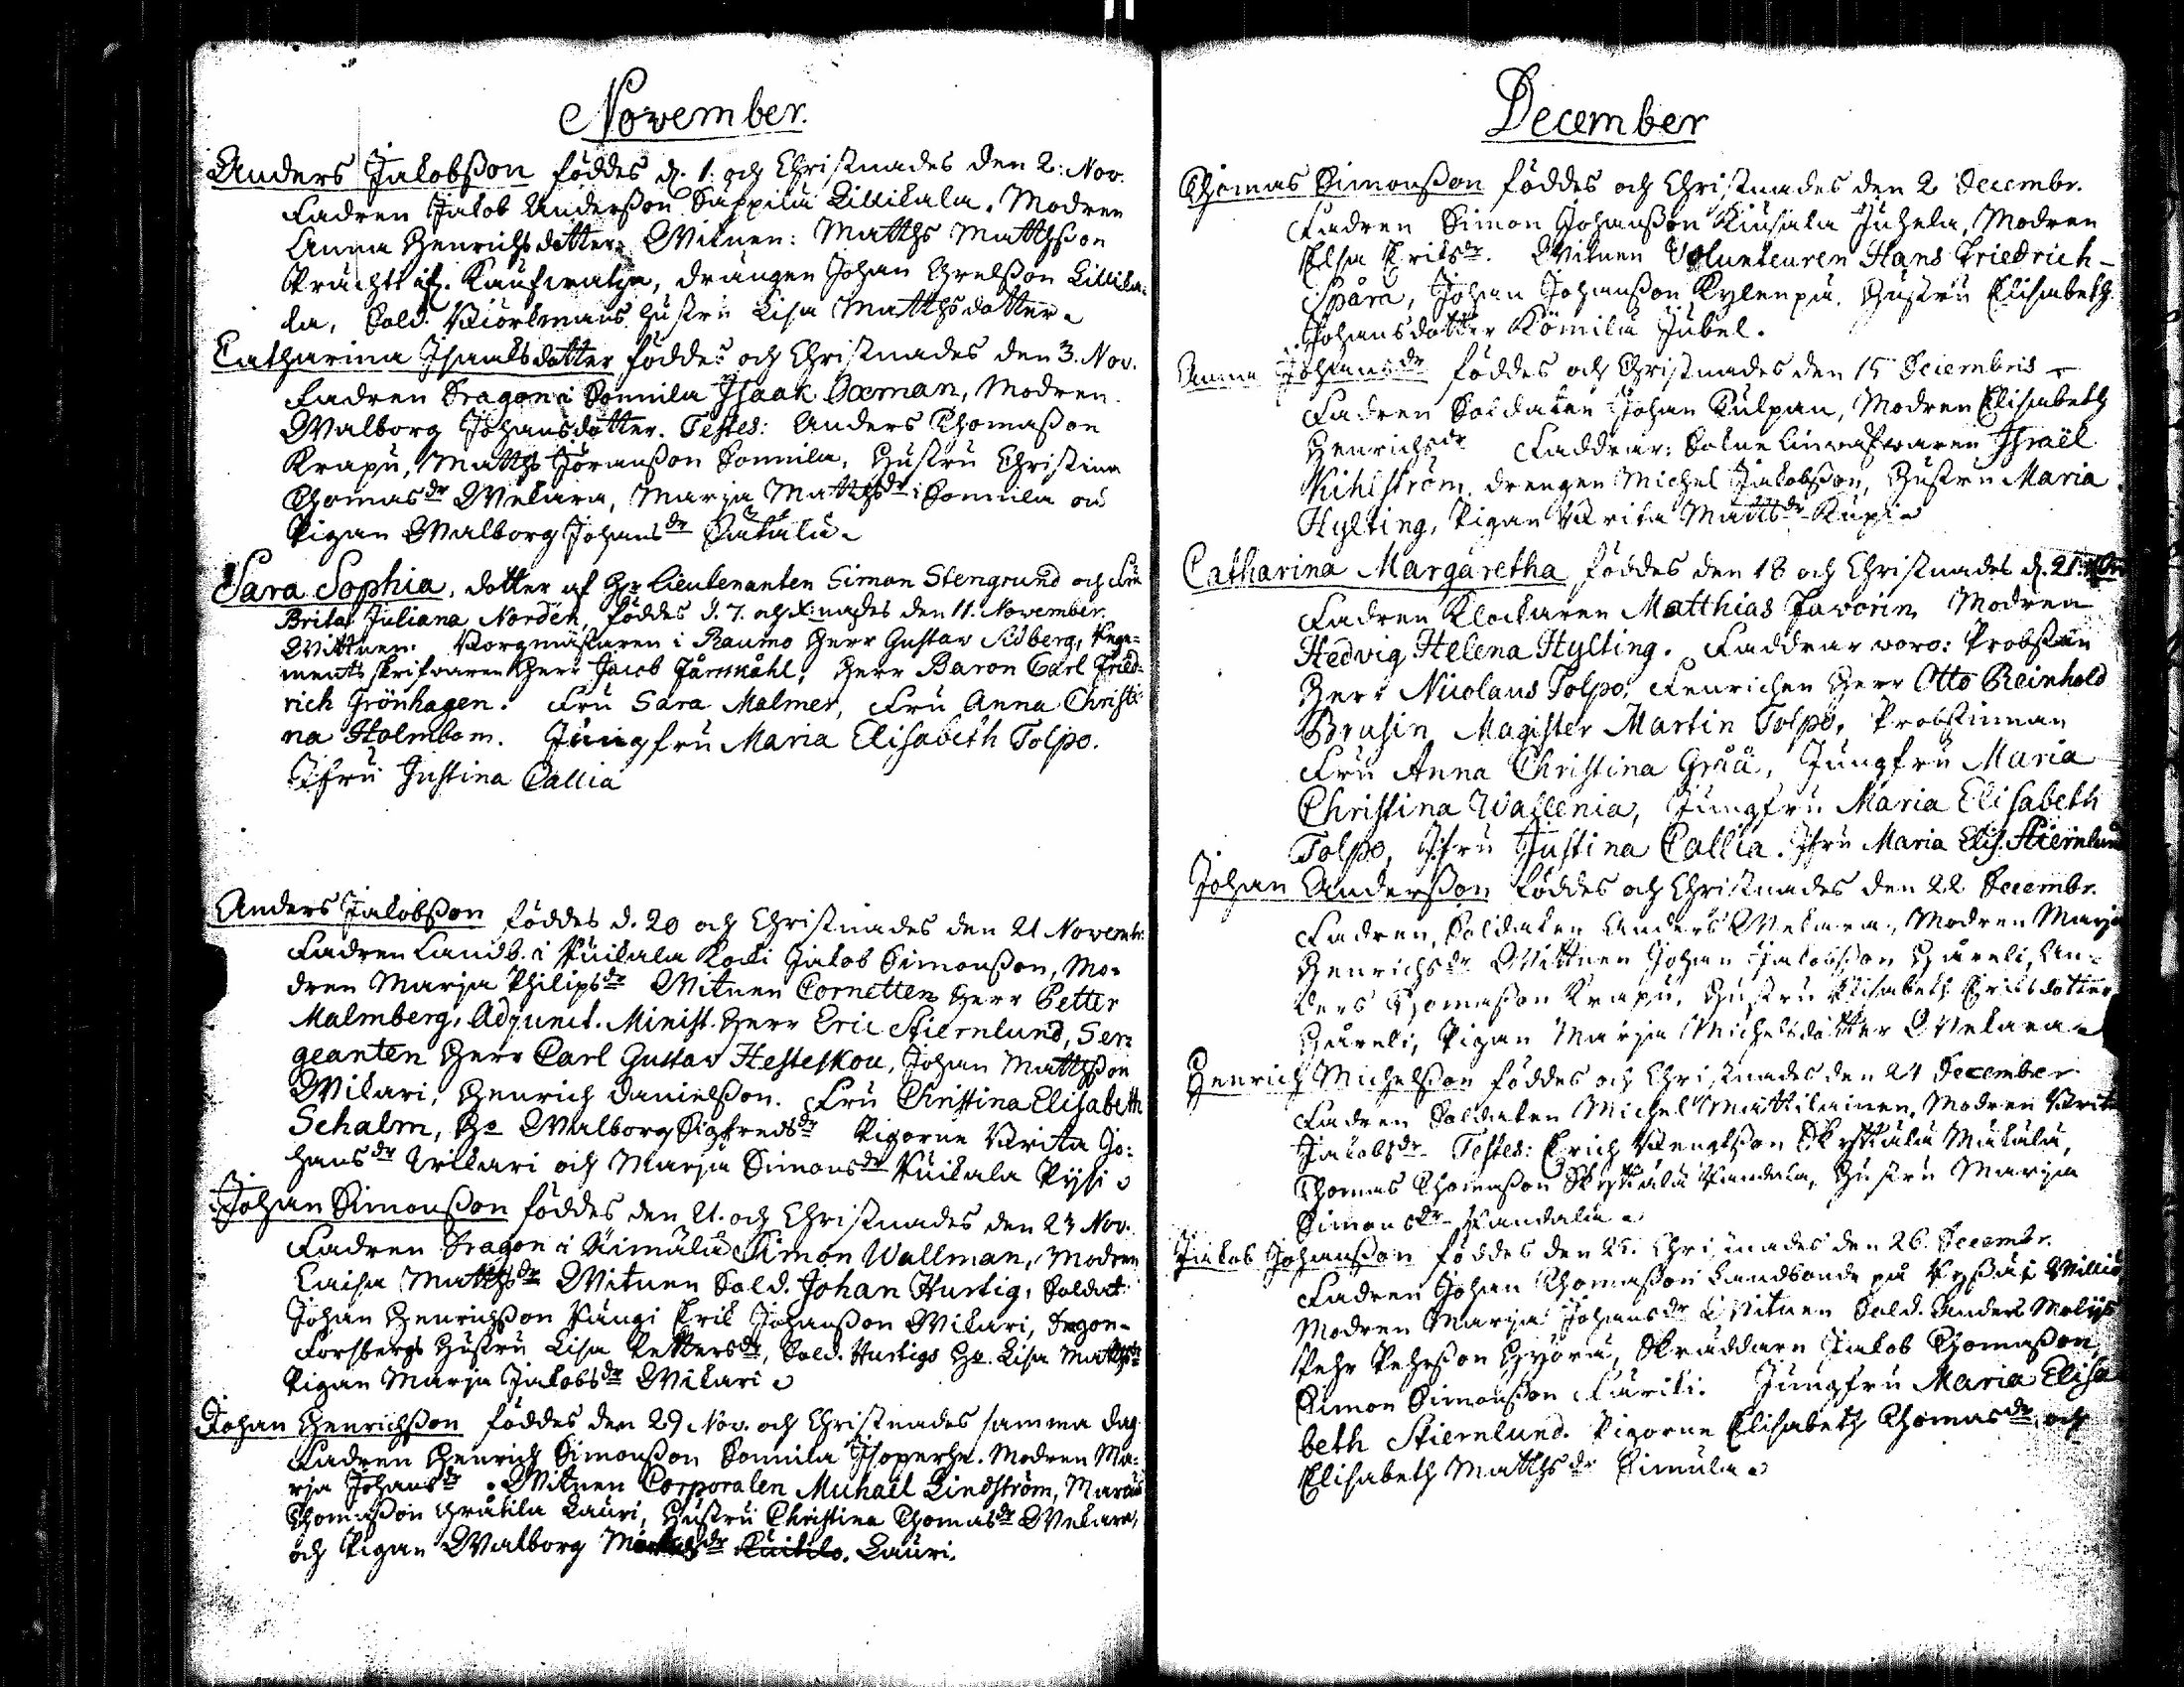 November.
Anders Jakobßon föddes d. 1. och Christnades den 2: Nov.
Fadren Jakob Anderßon Lillikala. Modren
Anna Henrichsdotter. Witnen: Matths Matthßon
drängen Johan Lillika-
la, Sold. Hustru Lisa Matthsdotter.
Catharina Isaaksdotter föddes och Christnades den 3. Nov.
Fadren Dragon i Sonnila Isaak Boxman, Modren
Walborg Johansdotter. Testes: Anders Thomaßon
Krapu, Matths Jöranßon Sonnila, Hustru Christina
Thomasdr Wekara, Marja Matthsdr Sonnila och
Pigan Walborg Johansdr
Sara Sophia, dotter af Hr Lieutenanten Simon Stengrund och Fru
Brita Juliana Nordén, föddes d. 7. och X:nades den 11. November.
Wittnen. Borgmästaren i Raumo Herr Gustav Sidberg, Rege-
ments skrifvaren Herr Jacob Järnkåhl, Herr Baron Carl Fried-
rich Grönhagen. Fru Sara Malmer, Fru Anna Christi-
na Holmbom. Jungfru Maria Elisabeth Polpo.
Jfru Justina Callia
Anders Jakobßon föddes d. 20 och Christnades den 21 Novembr.
Fadren Landb. i Puikala Kocki Jakob Simonßon, Mo-
dren Marja Philipsdr Witnen Cornetten Herr Petter
Malmberg, Adjunct. Minist. Herr Eric Stiernlund, Ser-
geanten Herr Carl Gustav Hesteskou, Johan Matthßon
Wikari, Henrich Danielßon. Fru Christina Elisabeth
Schalm, H. Walborg Sigfredsdr Pigorne Brita Jo-
hansdr och Marja Simonsdr Puikala Pysi
Johan Simonßon föddes den 21. och Christnades den 23 Nov.
Fadren Dragon i Simon Wallman, Modren
Caisa Matthsdr Witnen Sold. Johan Hurtig, Soldat
Johan Henrichßon Erik Johanßon Wikari, Dragon
Forsbergs Hustru Lisa Pettersdr, Sold. Hurtigs H. Lisa Matthsdr
Pigan Marja Jakobsdr Wikari
Johan Henrichßon föddes den 29 Nov. och Christnades samma dag
Fadren Henrich Simonßon Sonnila Isoperhe. Modren Ma-
rja Johansdr. Witnen Corporalen Michaël Lindström, Marcus
Thomaßon Lauri, Hustru Christina Thomasdr Wekara,
och Pigan Walborg Lauri.
December
Thomas Simonßon föddes och Christnades den 2 Decembr.
Fadren Simon Johanßon Juhela, Modren
Elsa Eriksdr. Witnen Volunteuren Hans Friedrich
Spåra, Johan Johanßon Kylenpä. Hustru Elisabeth
Johansdotter Kömilä Jubel.
Anna Johansdr föddes och Christnades den 15 Decembris
Fadren Soldaten Johan Kulpan, Modren Elisabeth
Henrichsdr Faddrar: Israël
Kihlström. drengen Michel Jakobßon, Hustru Maria
Hylting, Pigan Brita Mattsdr
Catharina Margaretha föddes den 18 och Christnades d. 21.
Fadren Klockaren Matthias Favorin Modren
Hedvig Helena Hylting. Faddrar woro: Probsten
Herr Nicolaus Polpo, Fenrichen Herr Otto Reinhold
Brusin Magister Martin Polpo, Probstinnan
Fru Anna Christina Gråå, Jungfru Maria
Christina Wallenia, Jungfru Maria Elisabeth
Polpo, Jfru Justina Callia. Jfru Maria Elis. Stiernlund
Johan Anderßon föddes och Christnades den 22 Decembr.
Fadren, Soldaten Anders Wekara, Modren Marja
Henrichsdr Wittnen Johan Jakobßon Häreli, An-
ders Thomaßon Krapu, Hustru Elisabeth Eriksdotter
Häreli, Pigan Marja Michelsdotter Wekara
Henrich Michelßon föddes och Christnades den 24 December
Fadren Soldaten Michel Mattilainen, Modren Brita
Jakobsdr Testes: Erich Bengtßon
Thomas Thomaßon Hustru Marja
Simonsdr
Jakob Johanßon föddes den 25. Christnades den 26. Decembr.
Fadren Johan Thomaßon Landbonde på
Modren Marja Johansdr Witnen Sold. Anders
Pehr Pehrßon Skräddaren Jakob Thomaßon,
Simon Simonßon Jungfru Maria Elisa
beth Stiernlund. Pigorne Elisabeth Thomasdr, och
Elisabeth Matthsdr Simula